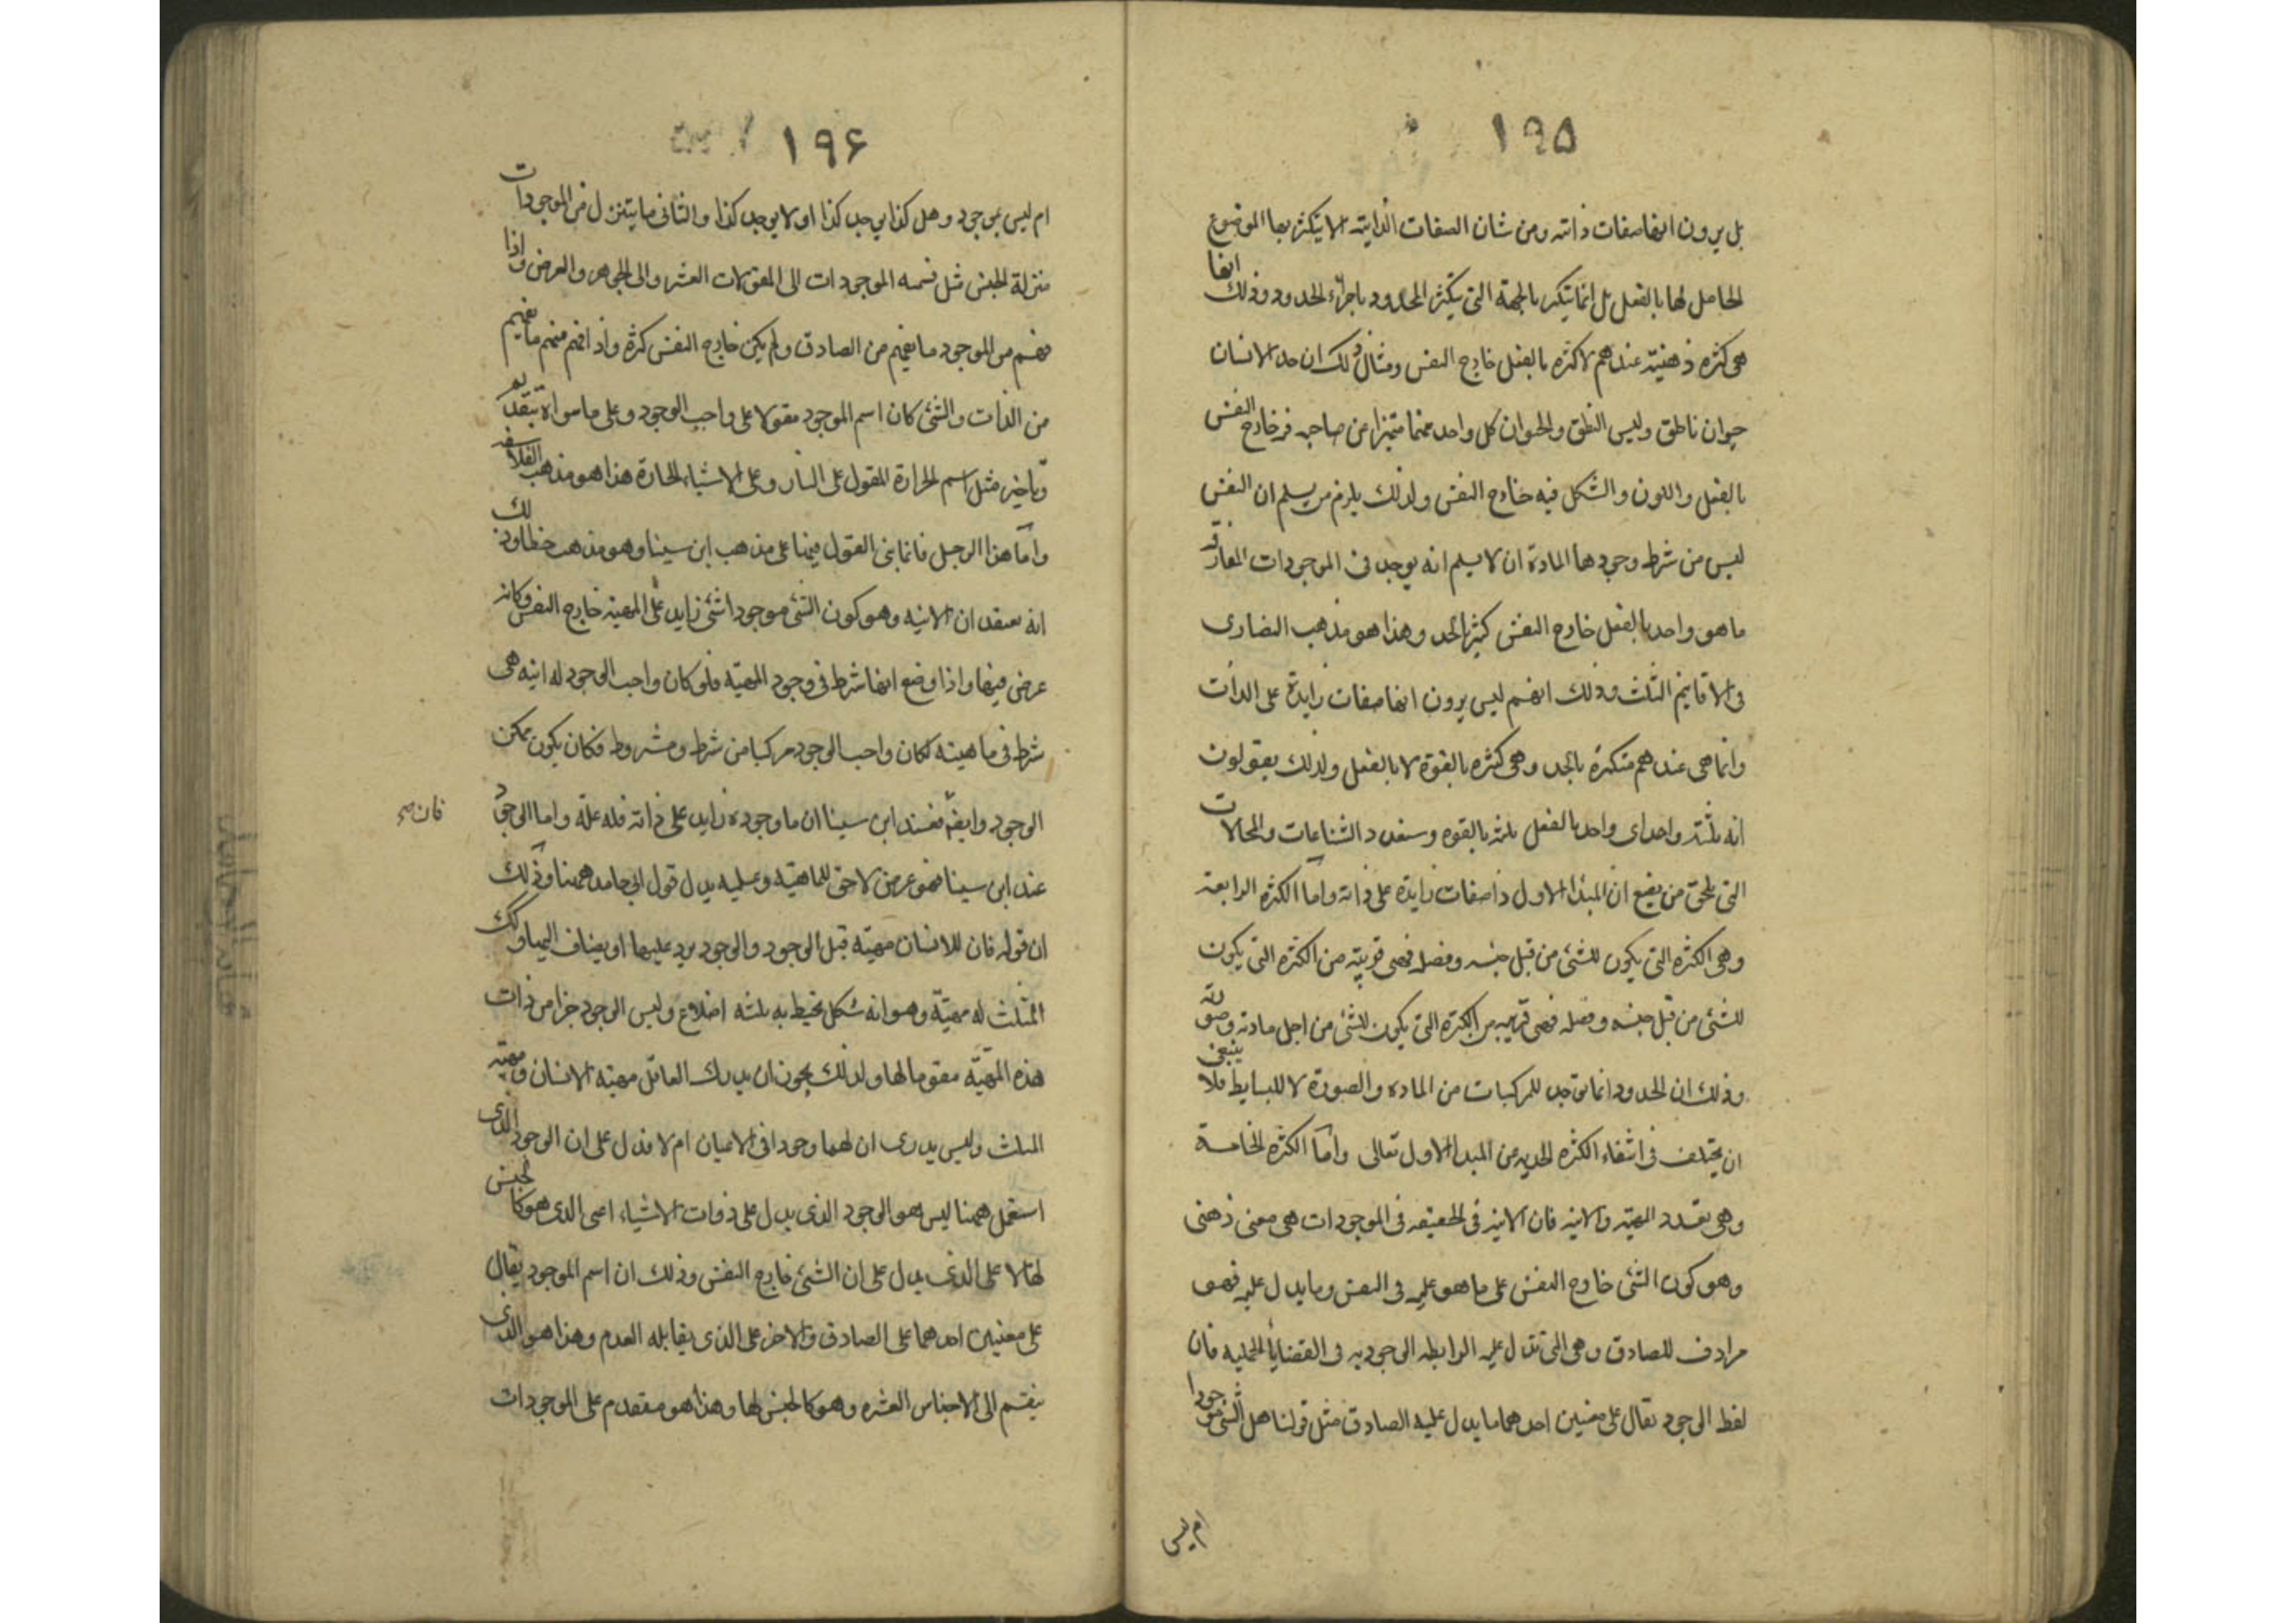 ١٩۵
بل يرون انها صفات ذاته ومن شان الصفات الذاتية الا يتكثر بها الموضوع
الحامل لها بالفعل بل انما يتكثر بالجهة التى يتكثر المحدود باجزاء الحدود وذلك انها
هى كثرة ذهنية عندهم لا كثرة بالفعل خارج النفس ومثال ذلك ان حد الانسان
حيوان ناطق وليس النطق والحيوان كل واحد منهما متميزا عن صاحبه فى خارج النفس
بالفعل واللون والشكل فيه خارج النفس ولذلك يلزم من يسلم ان النفس
ليس من شرط وجودها المادة ان لا يسلم انه يوجد فى الموجودات المفارقة
ما هو واحد بالفعل خارج النفس كثير الحد وهذا هو مذهب النصارى
فى الاقانيم الثلث وذلك انهم ليس يرون انها صفات زايدة على الذات
وانما هى عندهم متكثرة بالحد وهى كثرة بالقوة لا بالفعل ولذلك يقولون
انه ثلثة واحد اى واحد بالفعل ثلثة بالقوه وسنعدد الشناعات والمحالات
التى تلحق من يضع ان المبدا الاول ذا صفات زايدة على ذاته واما الكثرة الرابعة
وهى الكثرة التى يكون للشئ من قبل جنسه وفصله فهى قريبة من الكثرة التى يكون
للشئ من قبل جنسه وفصله فهى قريبة من الكثرة التى يكون للشئ من اجل مادته وصورته
وذلك ان الحدود انما توجد للمركبات من المادة والصورة لا للبسايط فلا ينبغى
ان يختلف فى انتفاء الكثرة الحدية من المبدا الاول تعالى واما الكثرة الخامسة
وهى تعدد المهية والانية فان الانية فى الحقيقه فى الموجودات هى معنى ذهنى
وهو كون الشئ خارج النفس على ما هو عليه فى النفس وما يدل عليه فهو
مرادف للصادق وهى التى تدل عليه الرابطه الوجوديه فى القضايا الحمليه فان
لفظ الوجود يقال على معنيين احدهما ما يدل عليه الصادق مثل قولنا هل الشئ موجودا
ام ليس
١٩۶
ام ليس بموجود وهل كذا يوجد كذا او لا يوجد كذا والثانى ما يتنزل من الموجودات
منزلة الجنس مثل قسمه الموجودات الى المقولات العشر والى الجوهر والعرض واذا
فهم من الموجود ما يفهم من الصادق ولم يكن خارج النفس كثرة واذ افهم منهم ما يفهم
من الذات والشئ كان اسم الموجود مقولا على واجب الوجود وعلى ما سواه بتقديم
وتاخير مثل اسم الحرارة المقول على النار وعلى الاشياء الحارة هذا هو مذهب الفلاسفه
واما هذا الرجل فانما بنى القول فيها على مذهب ابن سينا وهو مذهب خطا وذلك
انه يعتقد ان الانيه وهو كون الشئ موجودا شئ زايد على المهية خارج النفس وكانه
عرض فيها واذا وضع انها شرط فى وجود المهية فلو كان واجب الوجود له انيه هى
شرط فى ماهيته لكان واجب الوجود مركبا من شرط ومشروط فكان يكون ممكن
الوجود وايضا فعند ابن سينا ان ما وجوده زايد على ذاته فله علة واما الوجود
عند ابن سينا فهو عرض لاحق للماهية وعليه يدل قول ابى حامد ههنا وذلك
ان قوله فان للانسان مهية قبل الوجود والوجود يرد عليها او يضاف اليها وكذلك
المثلث له مهية وهو انه شكل تحيط به ثلثه اضلاع وليس الوجود جزا من ذات
هذه المهية مقوما لها ولذلك يجوز ان يدرك العاقل مهية الانسان ومهية
المثلث وليس يدرى ان لهما وجودا فى الاعيان ام لا فدل على ان الوجود الذى
استعمل ههنا ليس هو الوجود الذى يدل على ذوات الاشياء اعنى الذى هو كالجنس
لها لا على الذى يدل على ان الشئ خارج النفس وذلك ان اسم الموجود يقال
على معنيين احدهما على الصادق والاخر على الذى يقابله العدم وهذا هو الذى
ينقسم الى الاجناس العشره وهو كالجنس لها وهذا هو مقدم على الموجودات
فان صح